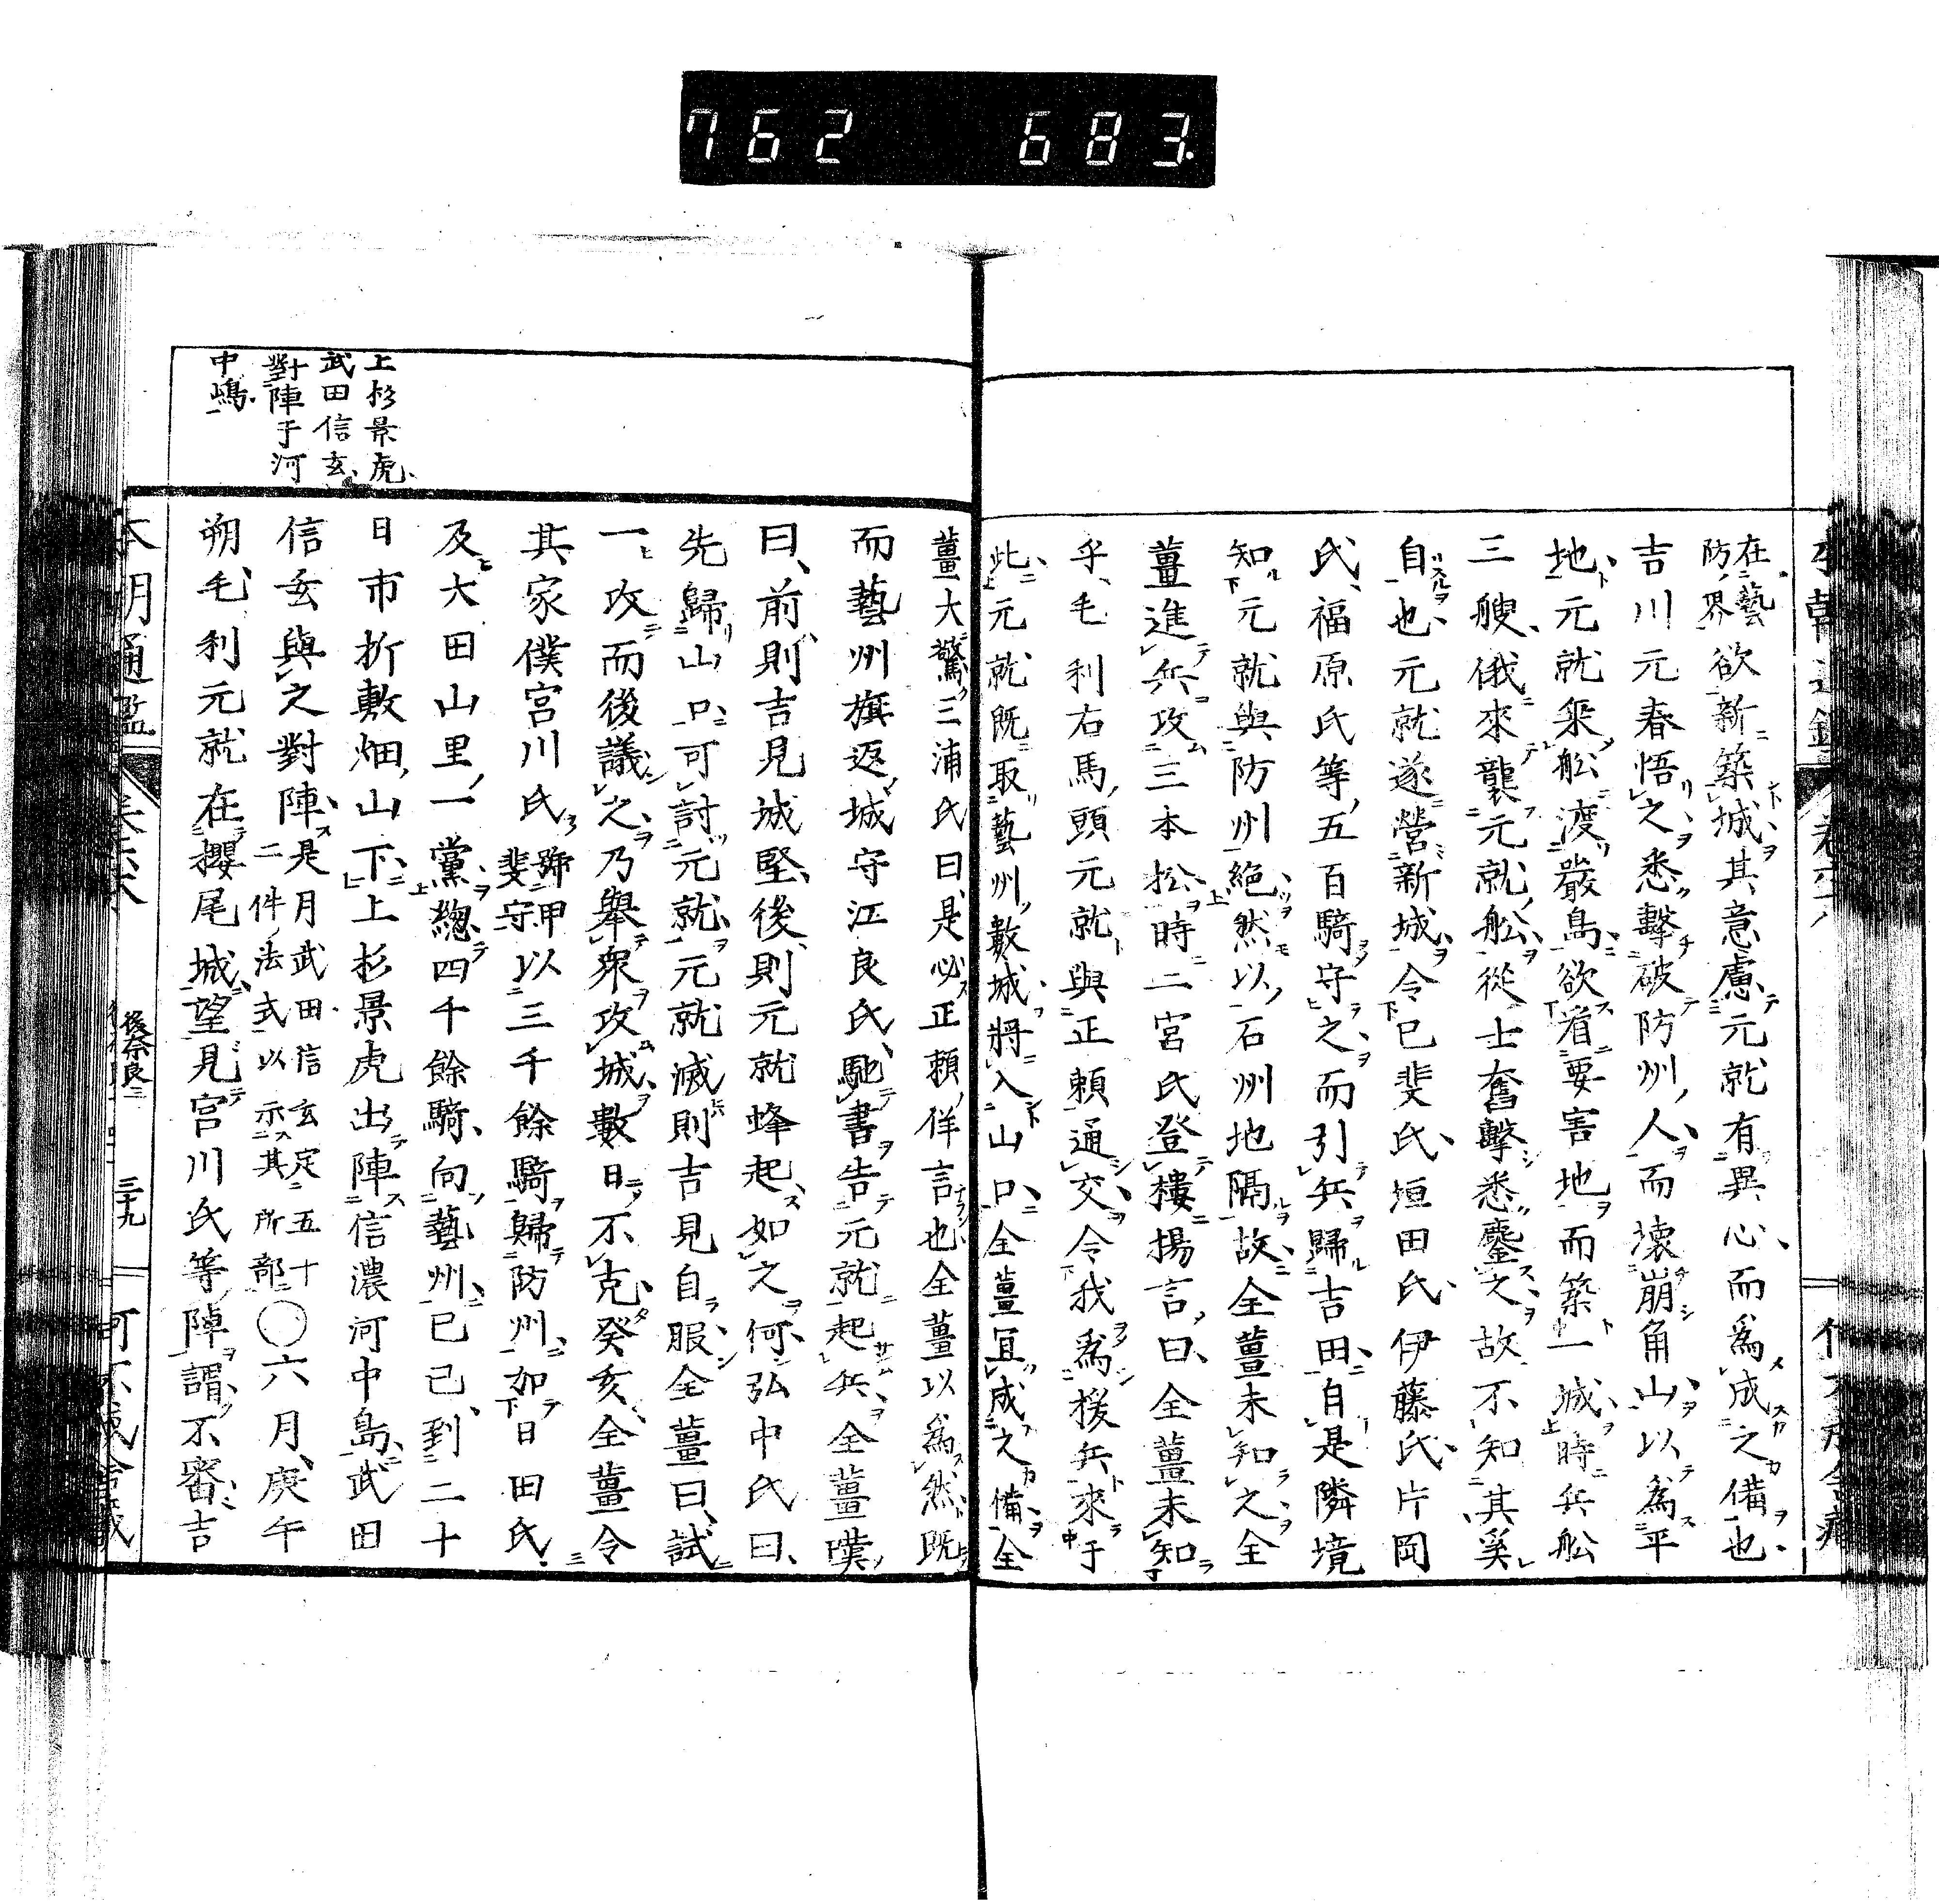 762 683.
在藝
防界
欲新築城其意慮元就有異心而爲成之備也
吉川元春悟之悉擊破防州人而壊崩角山以爲平
地元就乘舩渡嚴島欲省要害地而築一城時兵舩
三艘俄來襲元就舩從士奮擊悉鏖之故不知其奚
自也元就遂營新城令已斐氏垣田氏伊藤氏片岡
氏福原氏等五百騎守之而引兵歸吉田自是隣境
知元就與防州絕然以石州地隔故全薑未知之全
薑進兵攻三本松時二宮氏登樓揚言曰全薑未知
乎毛利右馬頭元就與正賴通交令我爲援兵來于
此元就既取藝州數城將入山口全薑宜成之備全
薑大驚三浦氏曰是必正賴佯言也全薑以爲然既
而藝州旗返城守江良氏馳書告元就起兵全薑嘆
曰前則吉見城堅後則元就蜂起如之何弘中氏曰
先歸山口可討元就元就滅則吉見自服全薑曰試
一攻而後議之乃舉衆攻城數日不克癸亥全薑令
其家僕宮川氏
號甲
斐守
以三千餘騎歸防州加日田氏
及大田山里一黨總四千餘騎向藝州已已到二十
日市折敷畑山下上杉景虎出陣信濃河中島武田
信玄與之對陣
是月武田信玄定五十
二件法式以示其所部
○六月庚午
朔毛利元就在櫻尾城望見宮川氏等陣謂不審吉
上杉景虎
武田信玄
對陣于河
中嶋
本朝通鑑
後奈良三
三十九